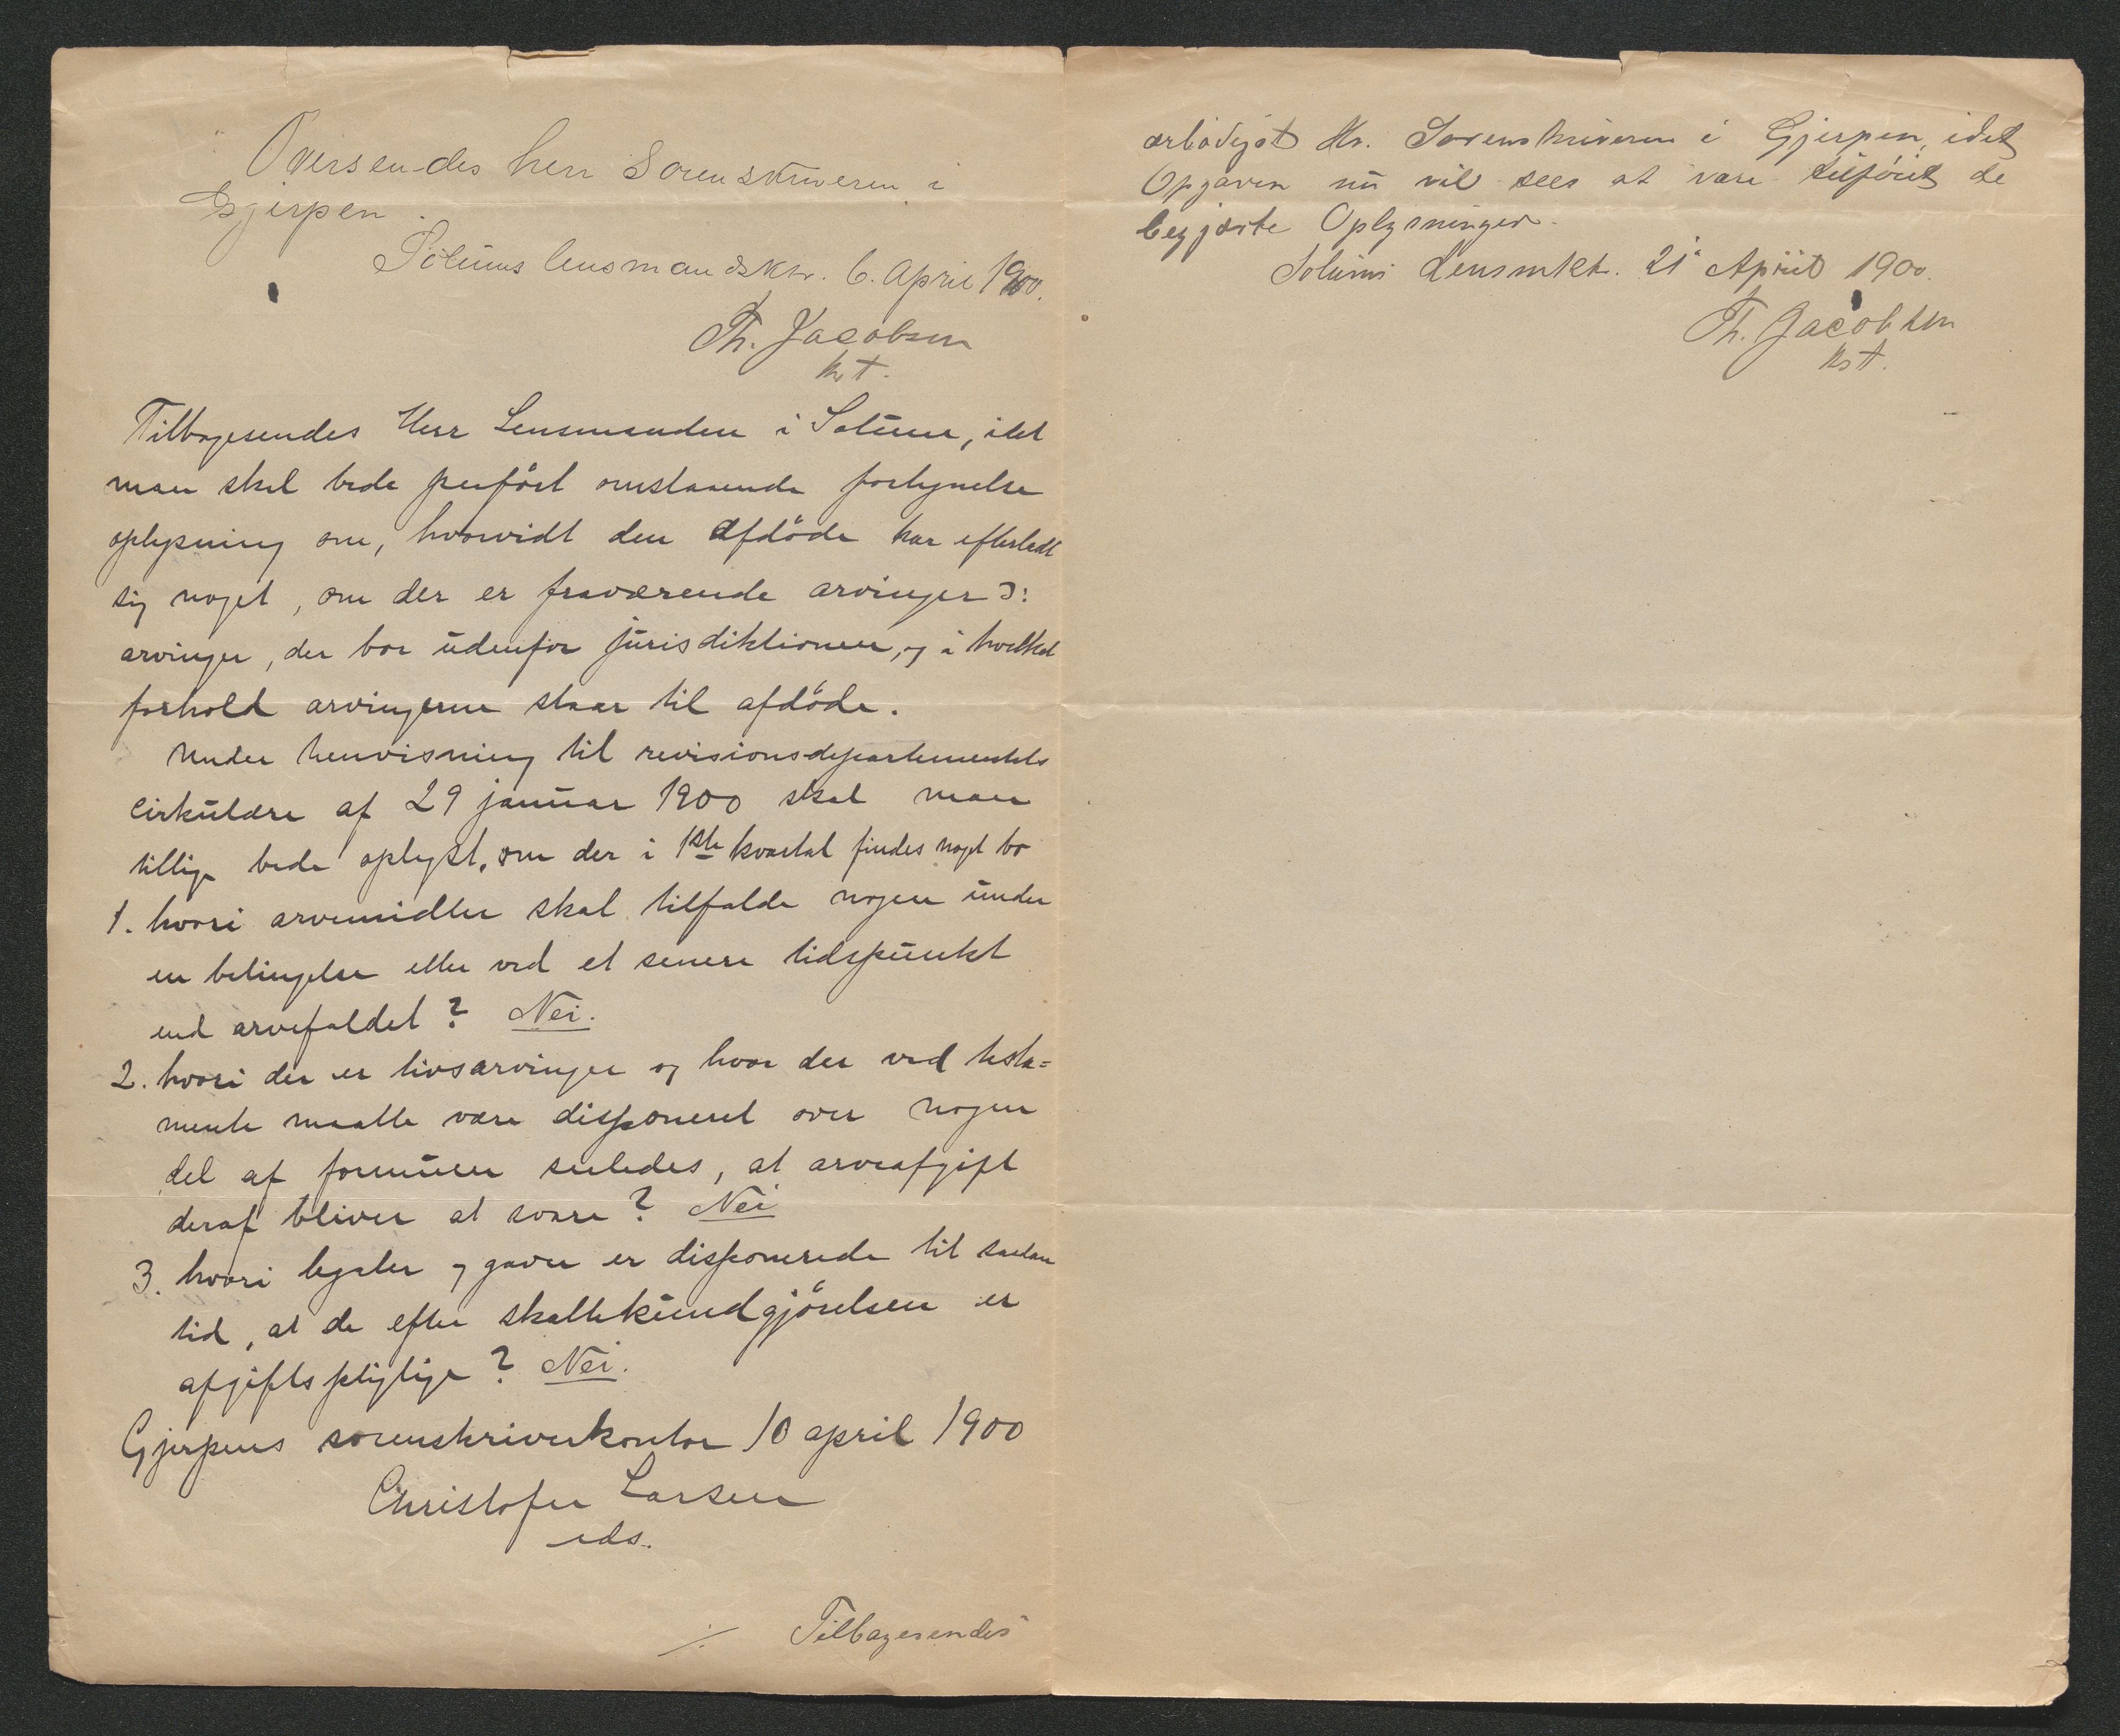 Oversendes herr Sorenskriveren i
Gjerpen.
Solums lensmandsktr. 6. April 1900.
Th. Jacobsen
kst.
Tilbagesendes Herr Lensmanden i Solum, idet
man skal bede paaført omstaaende fortegnelse
oplysning om, hvorvidt den afdöde har efterladt
sig noget, om der er fraværende arvinger ɔ:
arvinger, der bor udenfor jurisdiktionen, og i hvilket
forhold arvingerne staar til afdöde.
Under henvisning til revisionsdepartementets
cirkulære af 29 januar 1900 skal man
tillige bede oplyst, om der i 1ste kvartal findes noget bo
1. hvori arvemidler skal tilfalde nogen under
en betingelse eller ved et senere tidspunkt
end arvefaldet? Nei.
2. hvori der er livsarvinger og hvor der ved testa=
mente maatte være disponeret over nogen
del af formuen saaledes, at arveafgift
deraf bliver at svare? Nei
3. hvori legater og gaver er disponerede til saadan
tid, at de efter skattekundgjörelsen er
afgiftspligtige? Nei.
Gjerpens sorenskriverkontor 10 april 1900
Christofer Larsen
eds.
./. Tilbagesendes
ærbødigst Hr. Sorenskriveren i Gjerpen, idet
Opgaven nu vil sees at være tilføiet de
begjærte Oplysninger.
Solums Lensmkt. 21 April 1900.
Th. Jacobsen
kst.